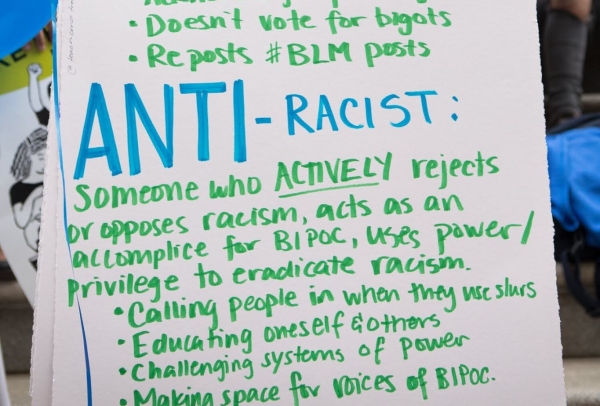 • Doesn't vote for bigots
• Reposts #BLM posts
ANTI-RACIST:
Someone who ACTIVELY rejects
or opposes racism, acts as an
accomplice for BIPOC, uses power/
privilege to eradicate racism.
• Calling people in when they use slurs
• Educating oneself & others
• Challenging systems of power
• Making space for voices of BIPOC.